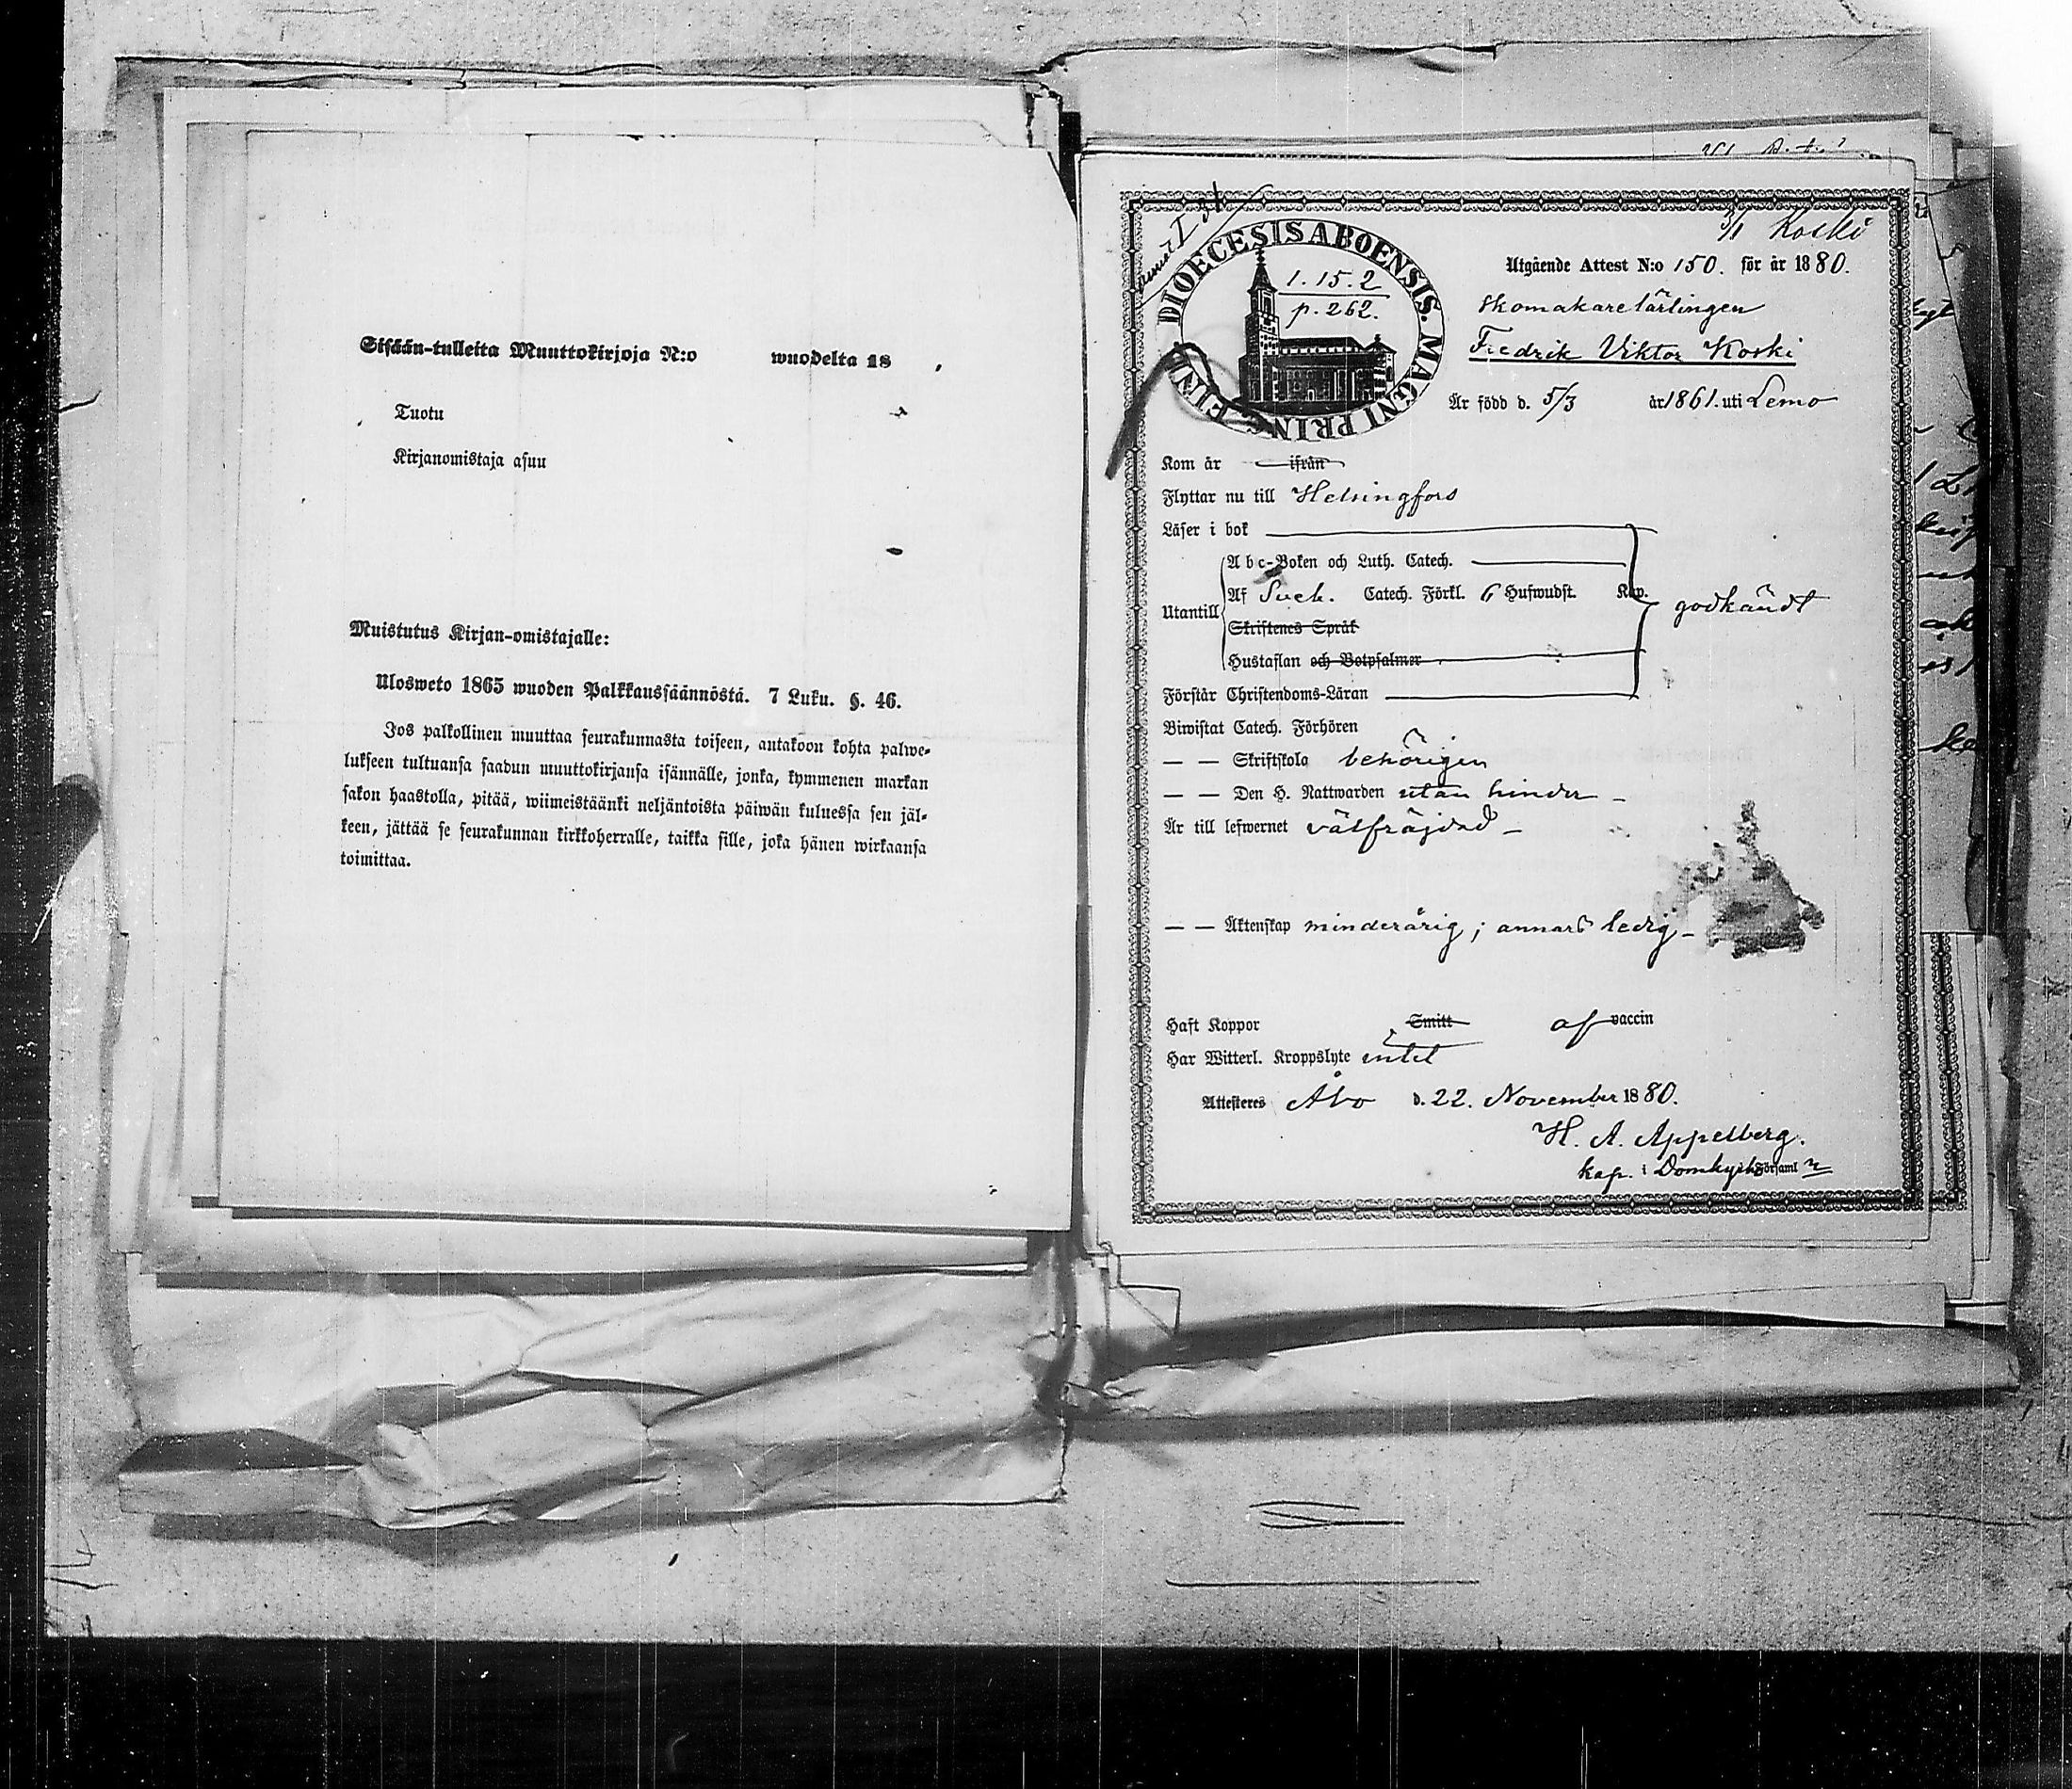 Sisään-tulleita Muuttokirjoja N:o wuodelta 18
Tuotu
Kirjanomistaja asuu
Muistutus Kirjan-omistajalle:
Ulosweto 1865 wuoden Palkkaussäännöstä. 7 Luku. §. 46.
Jos palkollinen muuttaa seurakunnasta toiseen, antakoon kohta palwe-
lukseen tultuansa saadun muuttokirjansa isännälle, jonka, kymmenen markan
sakon haastolla, pitää, wiimeistäänki neljäntoista päiwän kuluessa sen jäl-
keen, jättää se seurakunnan kirkkoherralle, taikka sille, joka hänen wirkaansa
toimittaa.
3/1 Koski
DIOECESIS ABOENSIS. MAGNI PRINC. FINL
1.15.2
p. 262.
Utgående Attest N:o 150. för år 1880.
Skomakarelärlingen
Fredrik Viktor Koski
Är född d. 5/3 år 1861. uti Lemo
Kom år ifrån
Flyttar nu till Helsingfors
Läser i bok
Utantill
Abc-Boken och Luth. Catech.
Af Sveb. Catech. Förkl. 6 Hufwudst. Kap. godkändt
Skriftenes Språk
Hustaflan och Botpsalmer
Förstår Christendoms-Läran
Biwistat Catech. Förhören
— — Skriftskola behörigen
— — Den H. Nattwarden utan hinder –
Är till lefwernet välfräjdad –
— — Äktenskap minderårig; annars ledig –
Haft Koppor Smitt af vaccin
Har Witterl. Kroppslyte intet
Attesteres Åbo d. 22. November 1880.
H. A. Appelberg.
kap. i Domkyrko Församl n